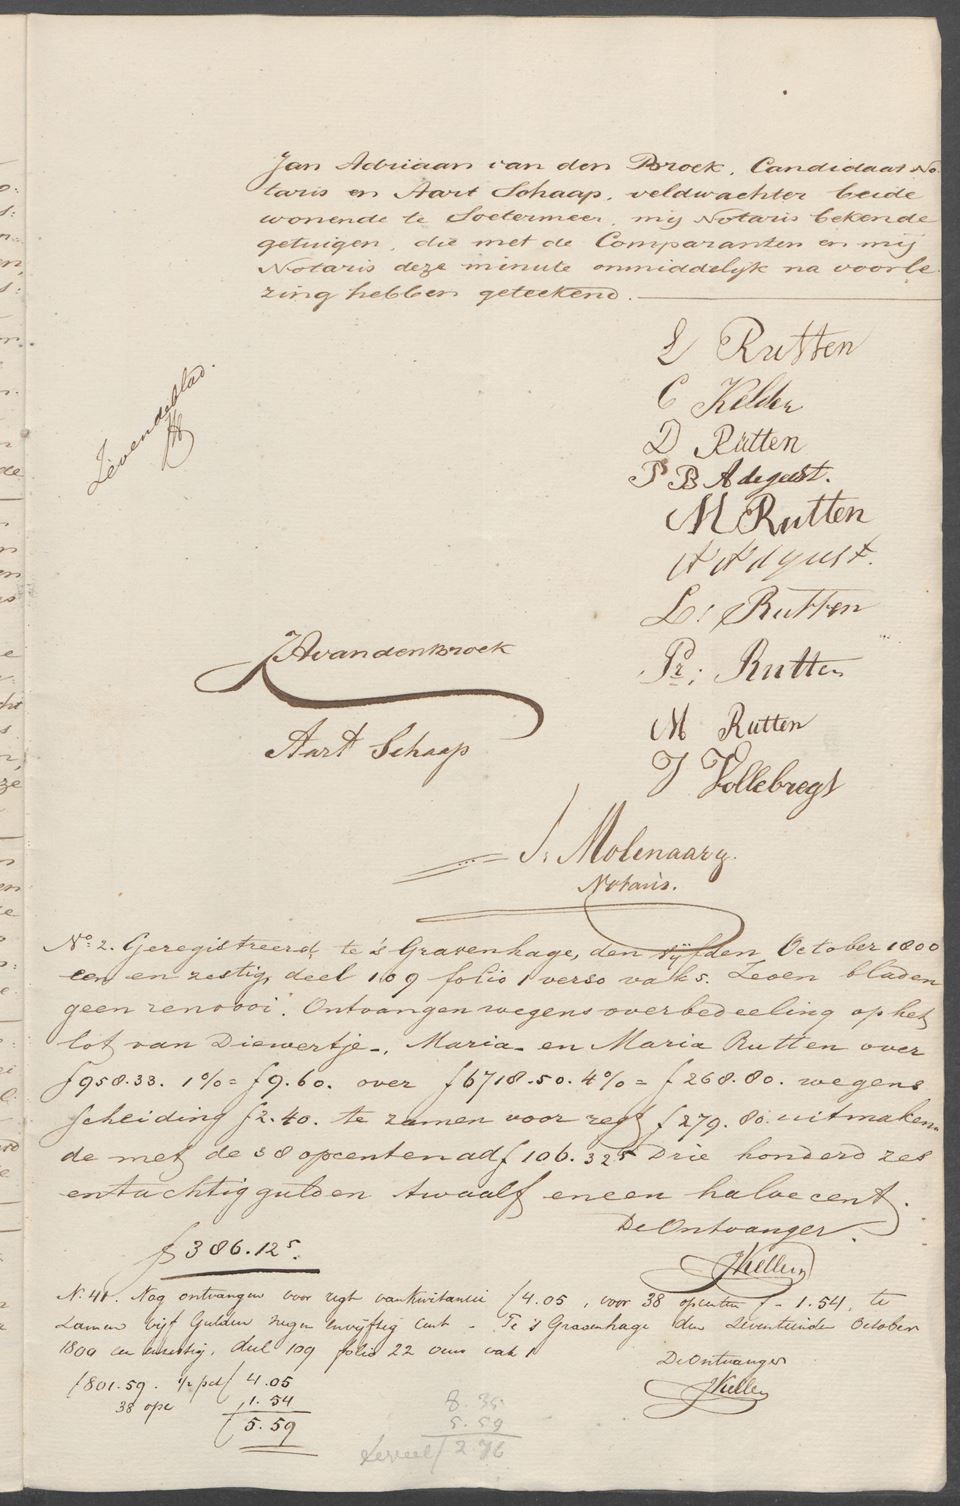 Jan Adriaan van den Broek, Candidaat No-
taris en Aart Schaap, veldwachter beide
wonende te Soetermeer, mij Notaris bekende
getuigen, die met de Comparanten en mij
Notaris deze minute onmiddelyk na voorle-
zing hebben geteekend.
L Rutten
C Kelder
D Rutten
P B Adegeest.
M Rutten
L: Rutten
Pr: Rutten
M Rutten
J Vollebregt
Zevendeblad.
JAvandenBroek
Aart Schaap
J. Molenaar
Notaris.
No. 2. Geregistreerd, te 's Gravenhage, den vijfden October 1800
een en zestig, deel 109 folio 1 verso vak 5. Zeven bladen
geen renvooi. Ontvangen wegens overbedeeling op het
lot van Diewertje-, Maria- en Maria Rutten over
f 958.33. 1% = f 9.60. over f 6718.50. 4% = f 268.80. wegens
scheiding f 2.40. te zamen voor regt f 279.80. uitmaken-
de met de 38 opcenten ad f 106.325 Drie honderd zes
en tachtig gulden twaalf en een halve cent.
De Ontvanger.
f 386.125.
JKeller
N. 41. Nog ontvangen voor regt van kwitantie f 4.05, voor 38 opcenten f - 1.54, te
zamen vijf Gulden negen en vijftig cent - Te 's Gravenhage den Zeventienden October
1800 een en zestig, deel 109 folio 22 verso vak 1
De Ontvanger
JKeller
f 801.59. ½ pct f 4.05
38 opc 1.54
f 5.59
8.35
5.59
f 2 76